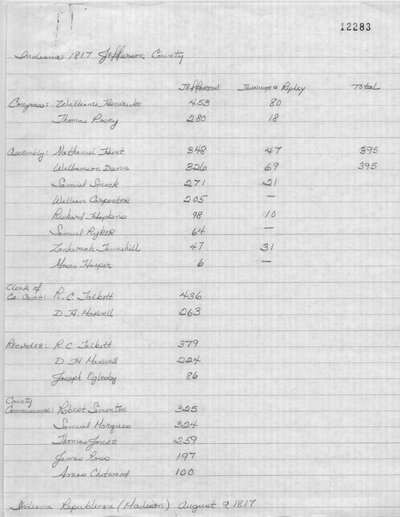 12283
Indiana 1817 Jefferson County
Jefferson Jennings & Ripley Total
Congress: William Hendricks 453 80
Thomas Posey 280 18
Assembly: Nathaniel Hunt 348 47 395
Williamson Dunn 326 69 395
Samuel Smock 271 21
William Carpenter 205 —
Richard Hopkins 98 10
Samuel Ryker 64 —
Zachariah Tannehill 47 31
Moses Harper 6 —
Clerk of
Co. Court: R. C. Talbott 436
D. H. Maxwell 263
Recorder: R. C. Talbott 379
D. H. Maxwell 224
Joseph 86
County
Commissioner: Robert Simonton 325
Samuel 324
Thomas Jones 259
James Ross 197
Amos Chitwood 100
Indiana Republican (Madison) August 9, 1817